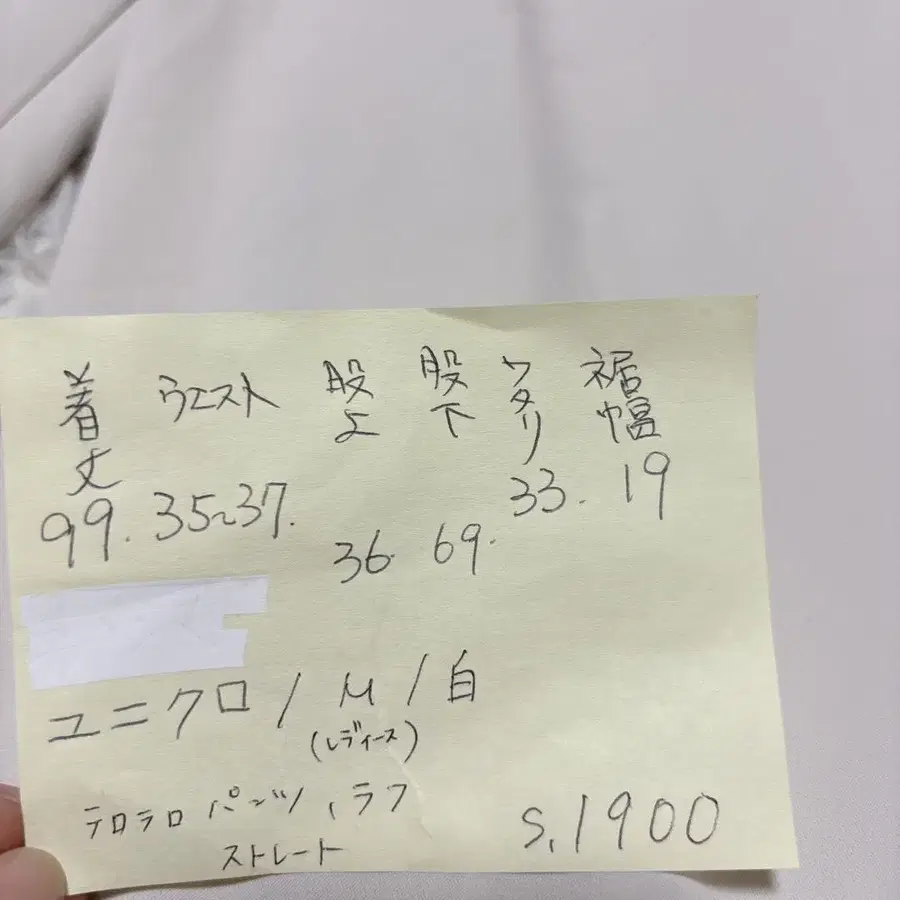 着丈 ウエスト 股上 股下 ワタリ 裾幅
99. 35~37. 36. 69. 33. 19
ユニクロ / M / 白
(レディース)
テロテロパンツ、ラフ
ストレート
S.1900